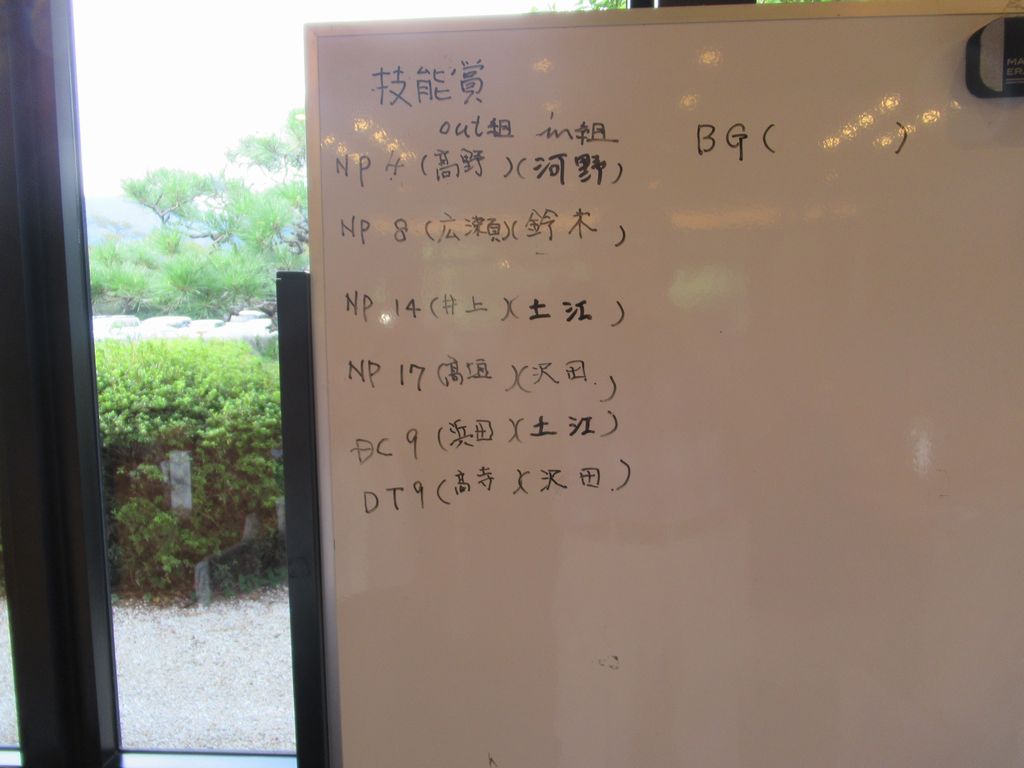 技能賞
out組 in組
BG( )
NP 4 (高野)(河野)
NP 8 (広瀬)(鈴木)
NP 14 (井上)(土江)
NP 17 (高垣)(沢田)
DC 9 (浜田)(土江)
DT9 (高寺)(沢田)